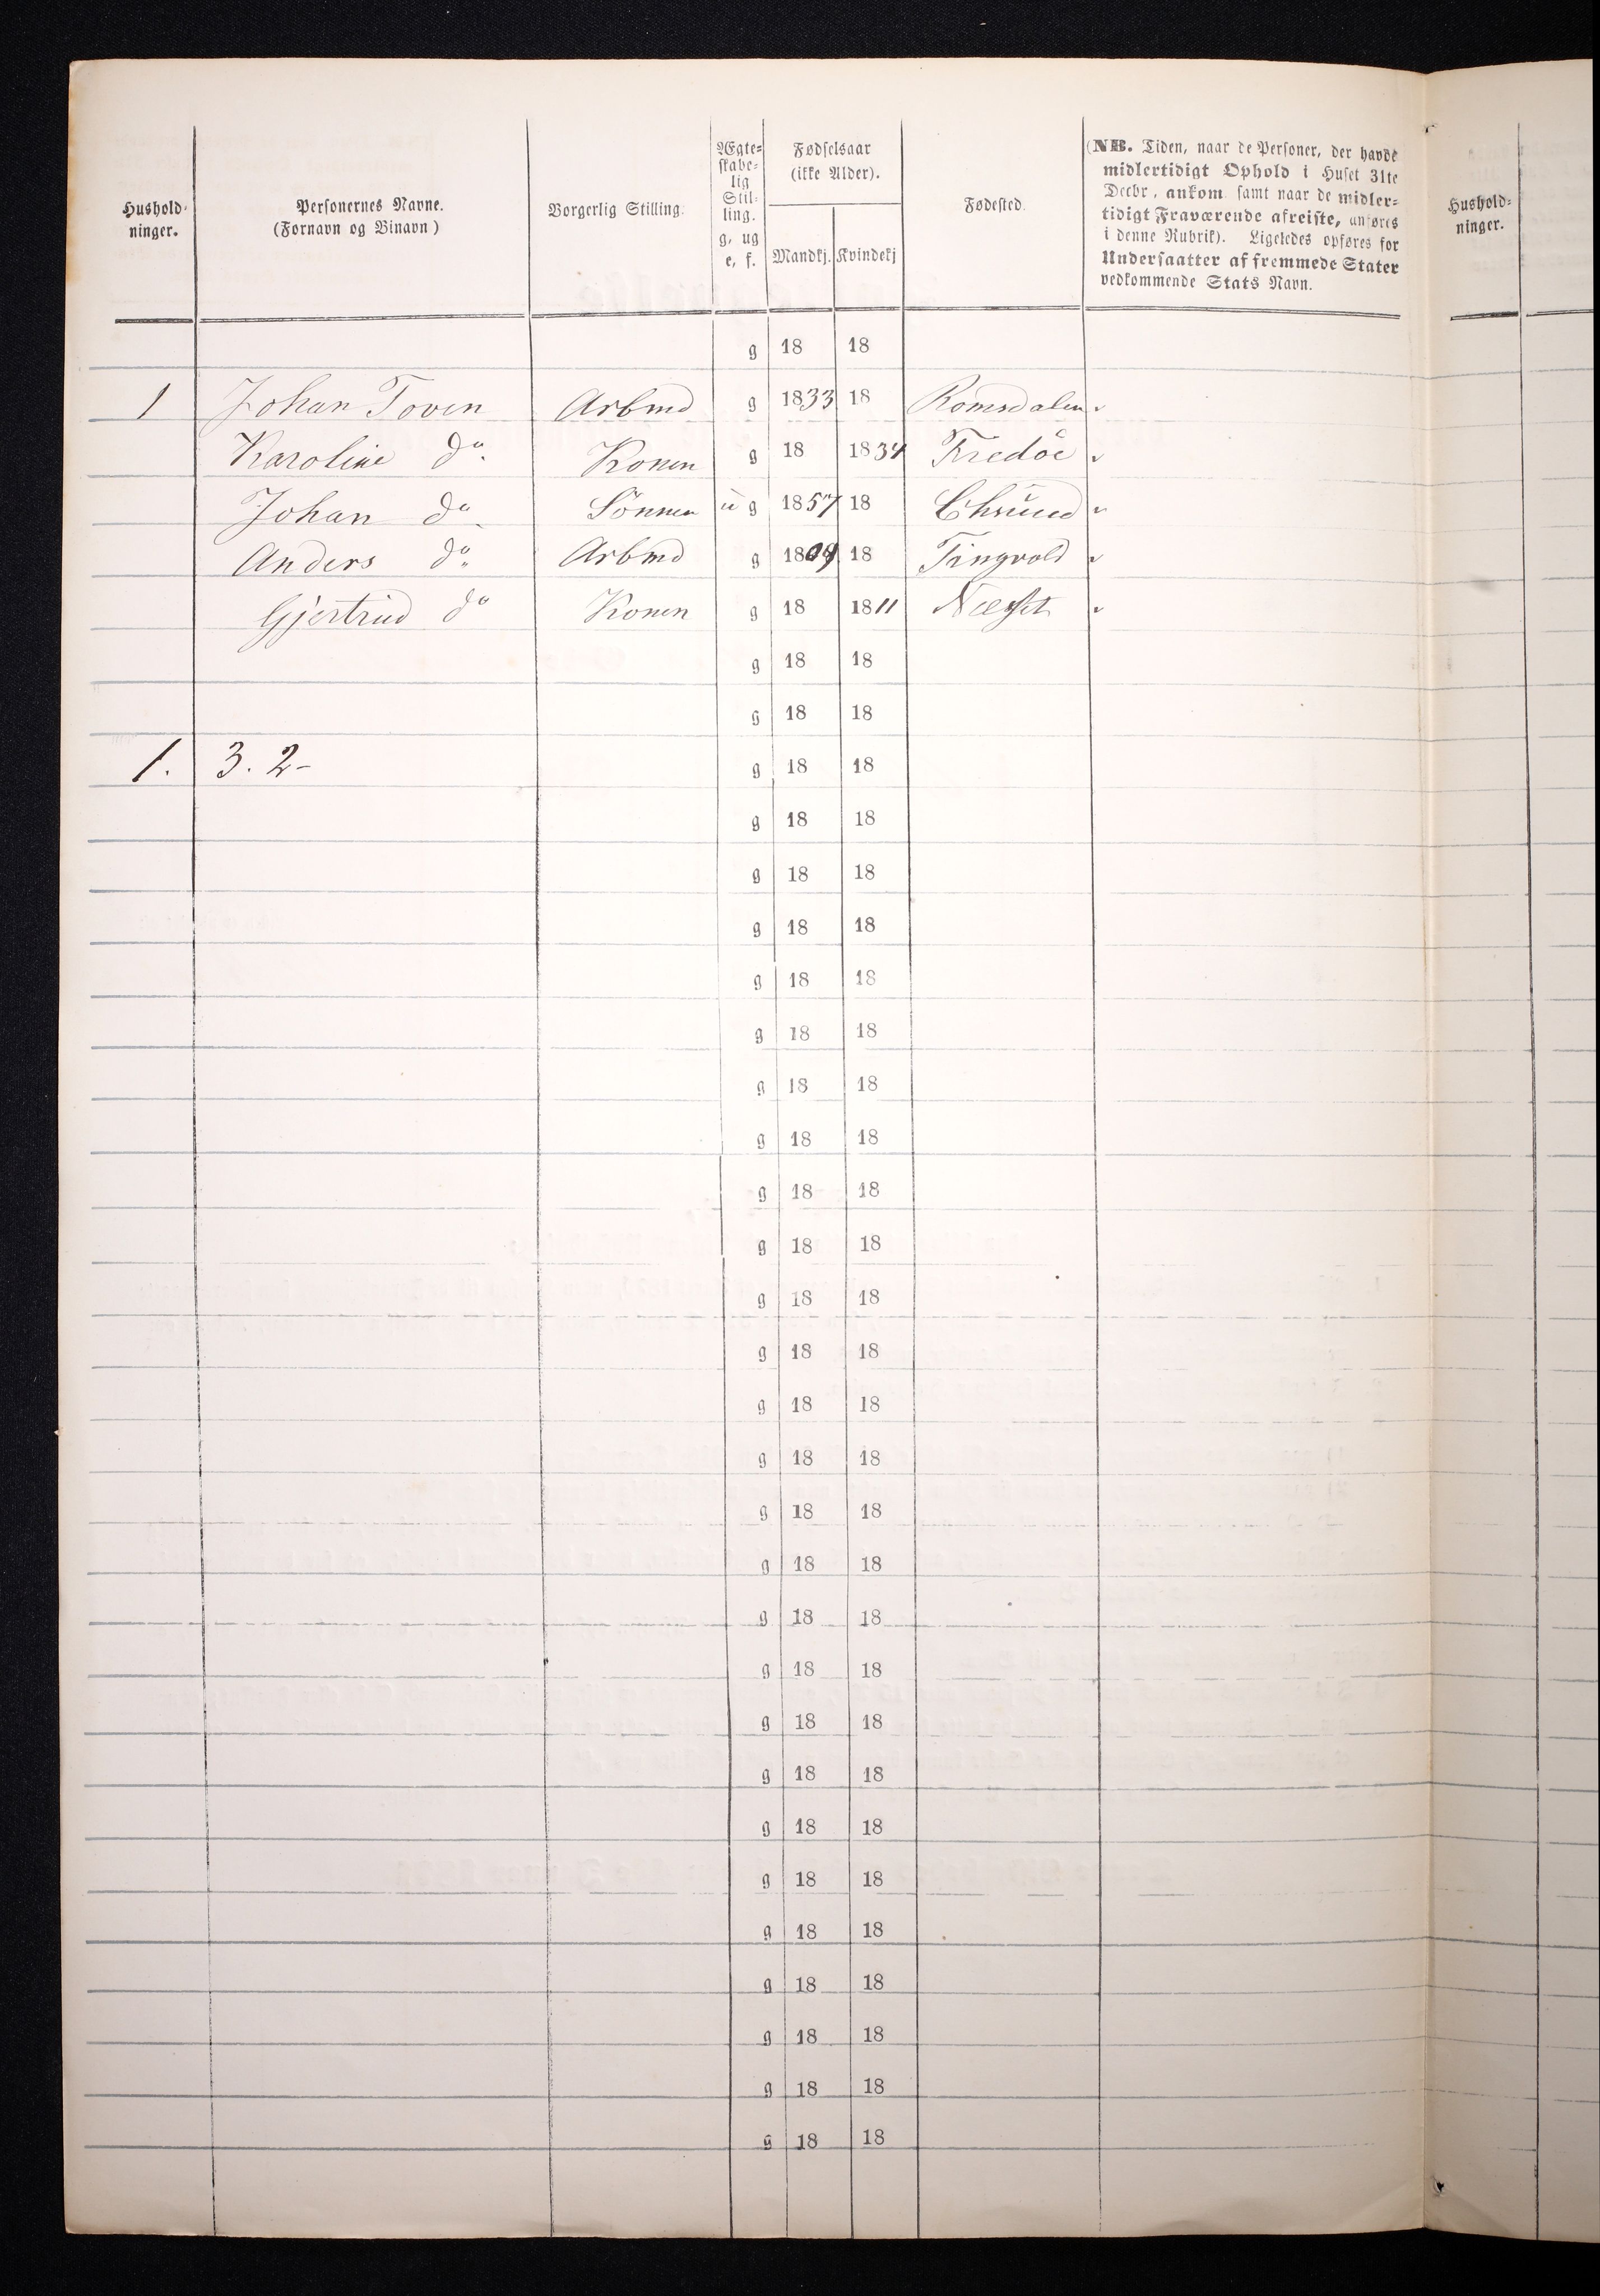 Hushold-
ninger.
Personernes Navne.
(Fornavn og Binavn)
Borgerlig Stilling.
Ægte-
skabe-
lig
Stil-
ling.
g, ug
e, f.
Fødselsaar
(ikke Alder).
Mandkj. Kvindekj
Fødested.
(NB. Tiden, naar de Personer, der havde
midlertidigt Ophold i Huset 31te
Decbr, ankom samt naar de midler-
tidigt Fraværende afreiste, anføres
i denne Rubrik). Ligeledes opføres for
Undersaatter af fremmede Stater
vedkommende Stats Navn.
Hushold-
ninger.
g 18 18
1 Johan Toven Arbmd g 1833 18 Romsdalen
Karoline do. Konen g 18 1834 Fredöe
Johan do Sönnen ug 1857 18 Chrsund
Anders do. Arbmd g 1809 18 Tingvold
Gjertrud do Konen g 18 1811 Nesset
g 18 18
g 18 18
1. 3. 2- g 18 18
g 18 18
g 18 18
g 18 18
g 18 18
g 18 18
g 18 18
g 18 18
g 18 18
g 18 18
g 18 18
g 18 18
g 18 18
g 18 18
g 18 18
g 18 18
g 18 18
g 18 18
g 18 18
g 18 18
g 18 18
g 18 18
g 18 18
g 18 18
g 18 18
g 18 18
g 18 18